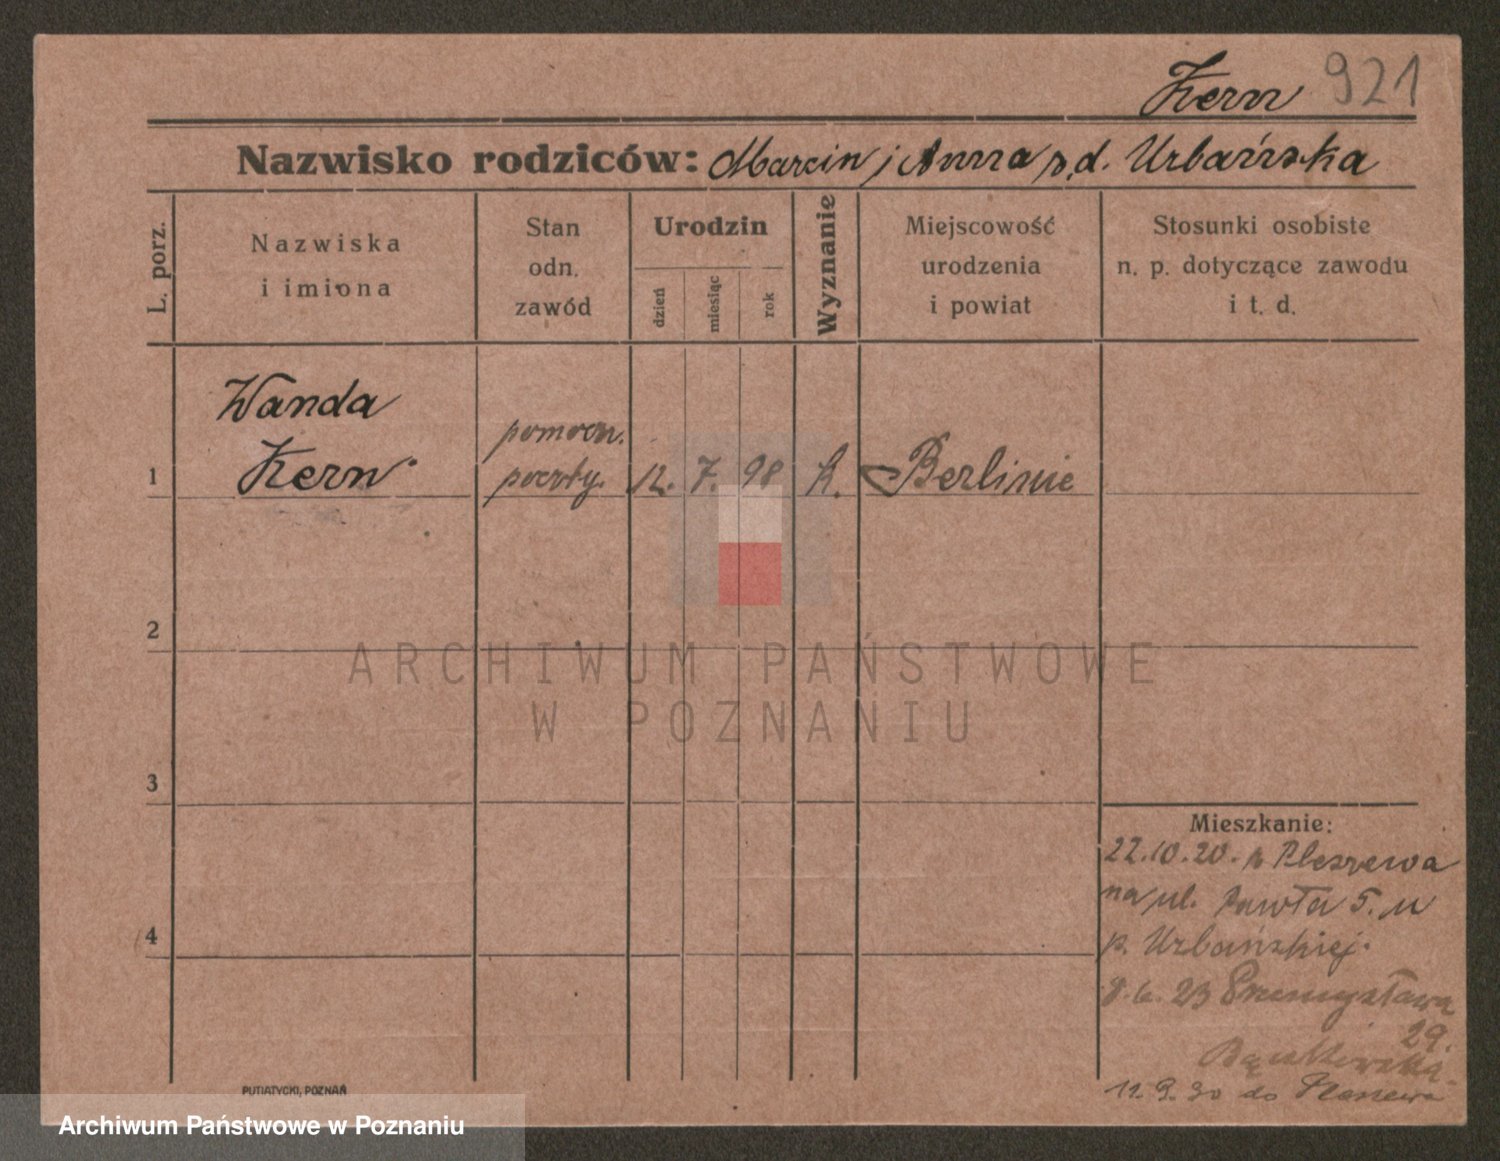 Kern 921
Nazwisko rodziców: Marcin i Anna z.d. Urbańska
L. porz.
Nazwiska
i imiona
Stan
odn.
zawód
Urodzin
dzień
miesiąc
rok
Wyznanie
Miejscowość
urodzenia
i powiat
Stosunki osobiste
n. p. dotyczące zawodu
i t. d.
1
Wanda
Kern
pomocn.
poczty.
12. 7. 98
k.
Berlinie
2
ARCHIWUM PAŃSTWOWE
W POZNANIU
3
4
Mieszkanie:
22.10.20. z Pleszewa
na ul. Pawła 5. u
p. Urbańskiej.
8.6.23 Przemysława
29.
11.9.30 do Pleszewa
PUTIATYCKI, POZNAŃ
Archiwum Państwowe w Poznaniu